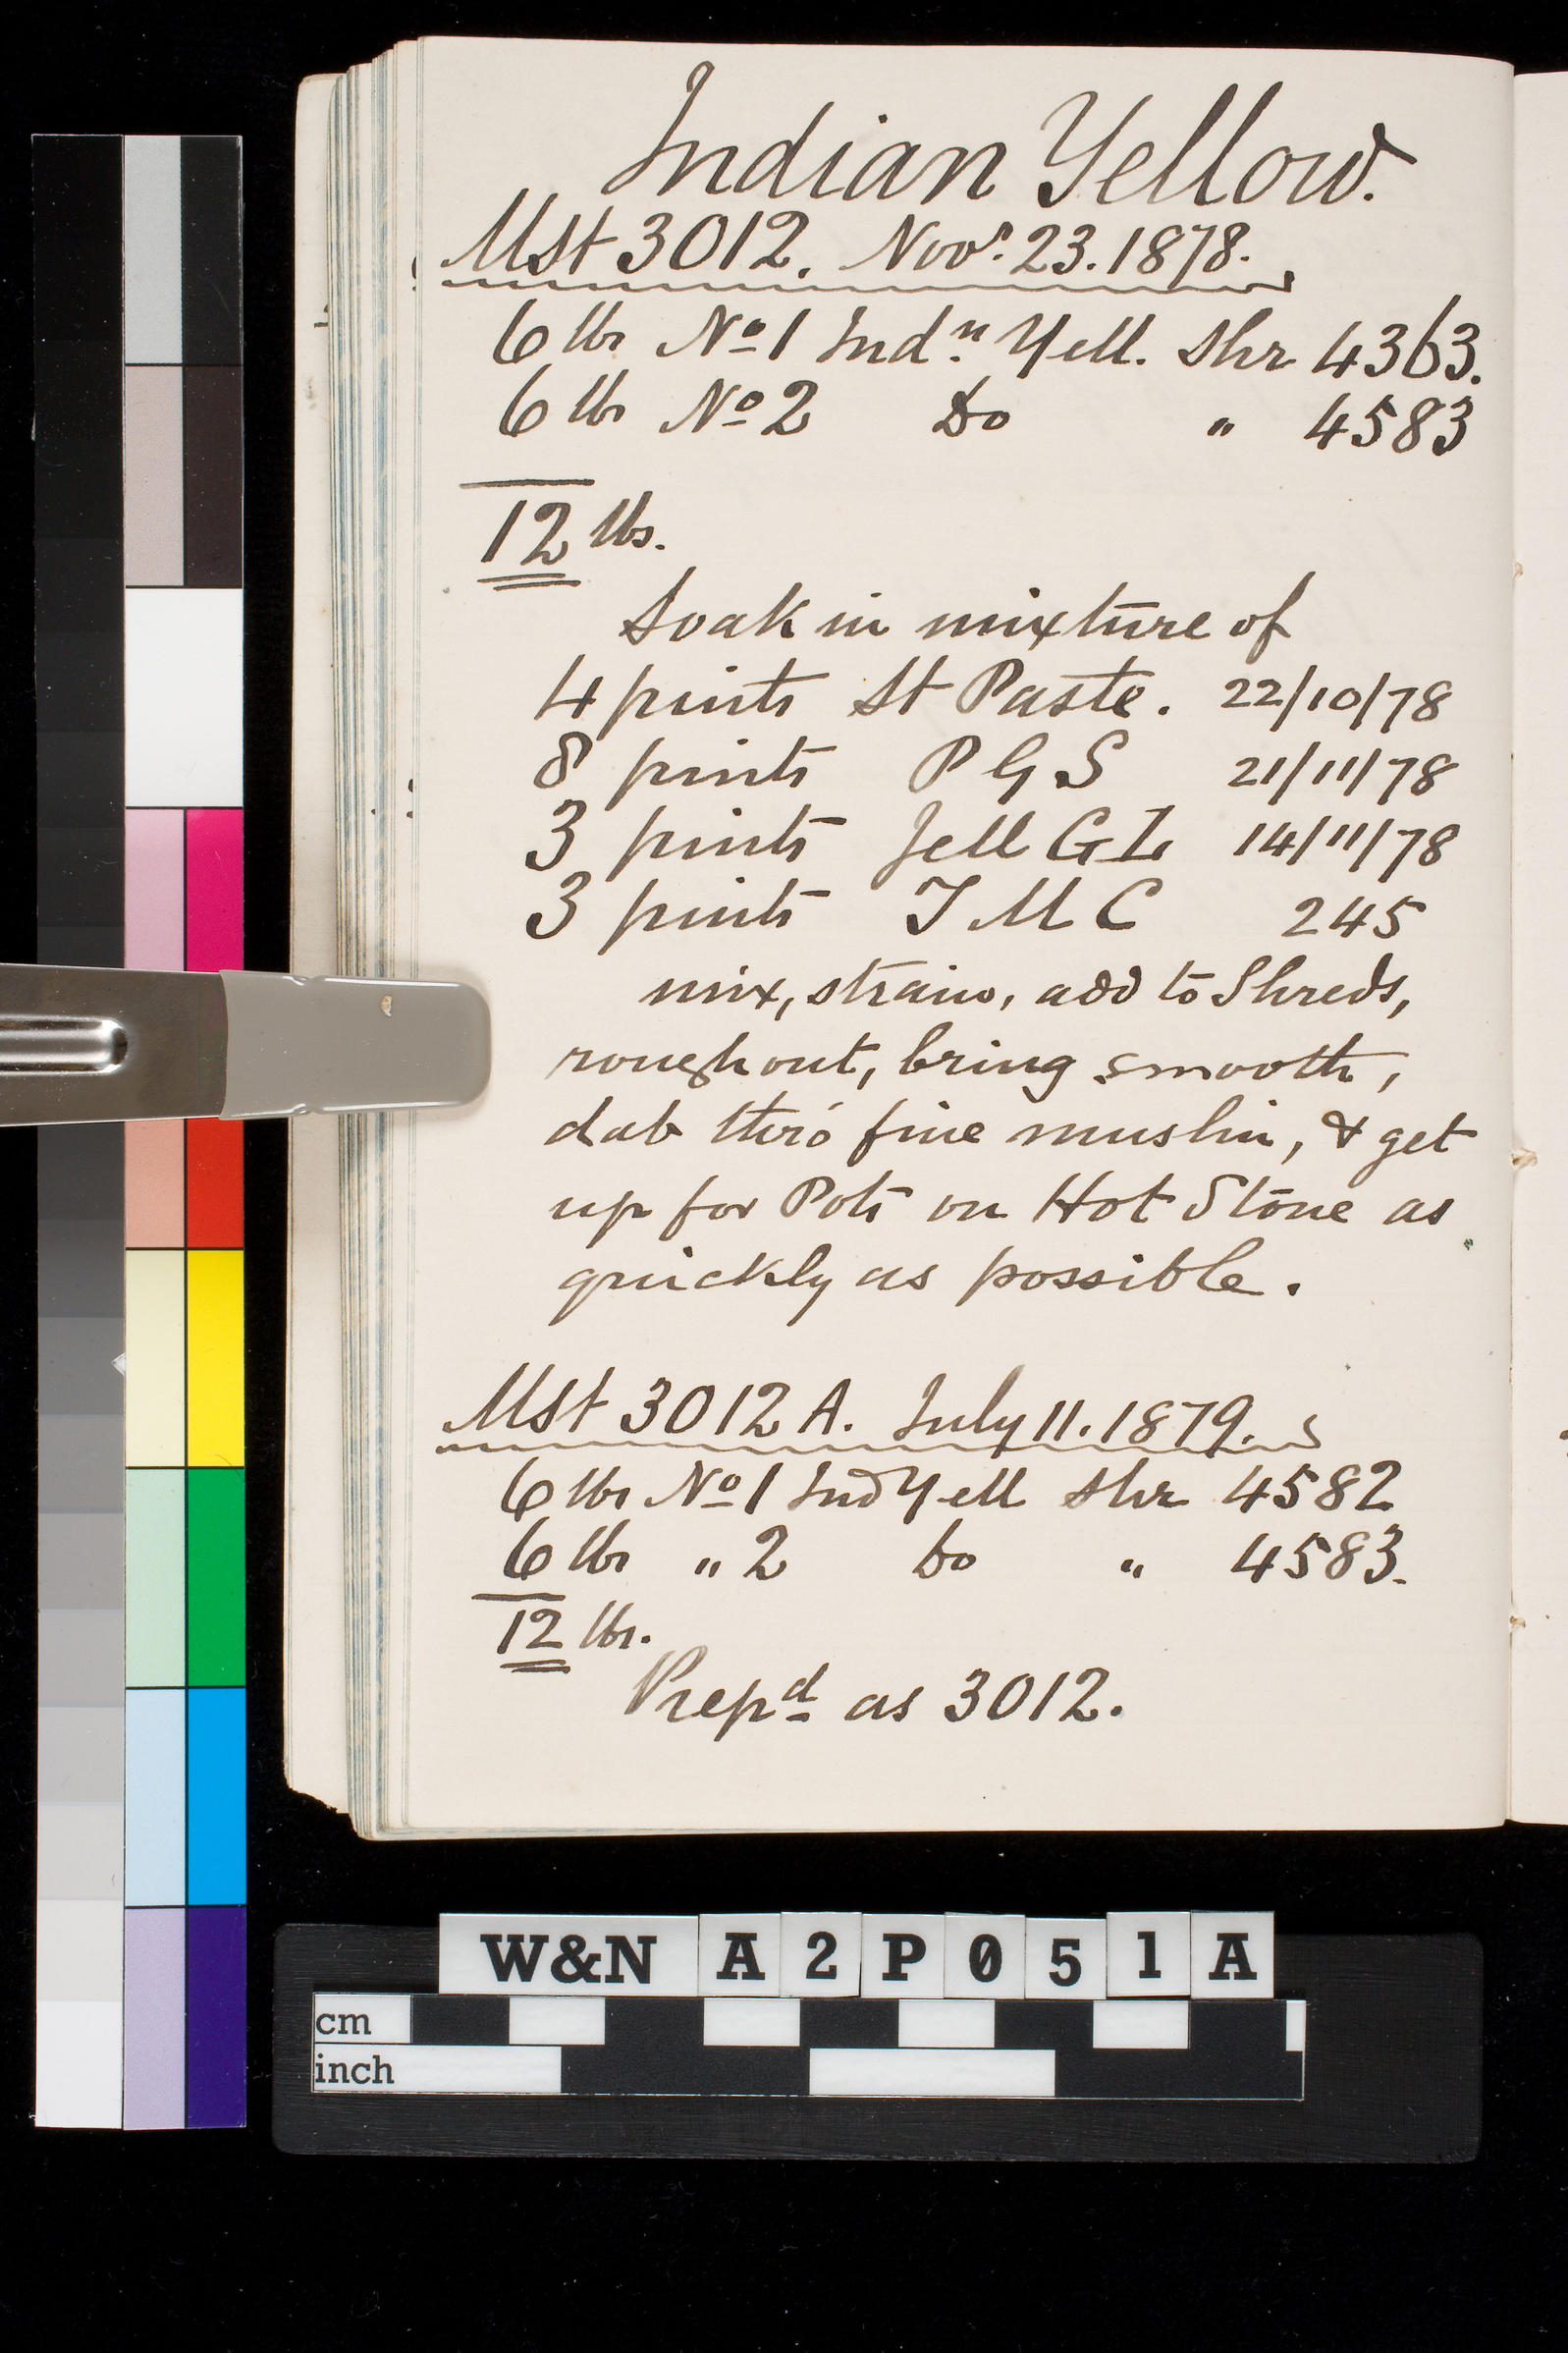 Indian Yellow.
Mst 3012. Novr. 23. 1878.
6 lbs No 1 Indn. Yell. Shr 4363.
6 lbs No 2 Do " 4583
12 lbs.
Soak in mixture of
4 pints St Paste. 22/10/78
8 pints P G S 21/11/78
3 pints Jell G L 14/11/78
3 pints T M C 245
mix, strain, add to Shreds,
rough out, bring smooth,
dab thro' fine muslin, & get
up for Pots on Hot Stone as
quickly as possible.
Mst 3012 A. July 11. 1879.
6 lbs No 1 Ind Yell Shr 4582
6 lbs " 2 Do " 4583.
12 lbs.
Prepd as 3012.
W&N A2P051A
cm
inch